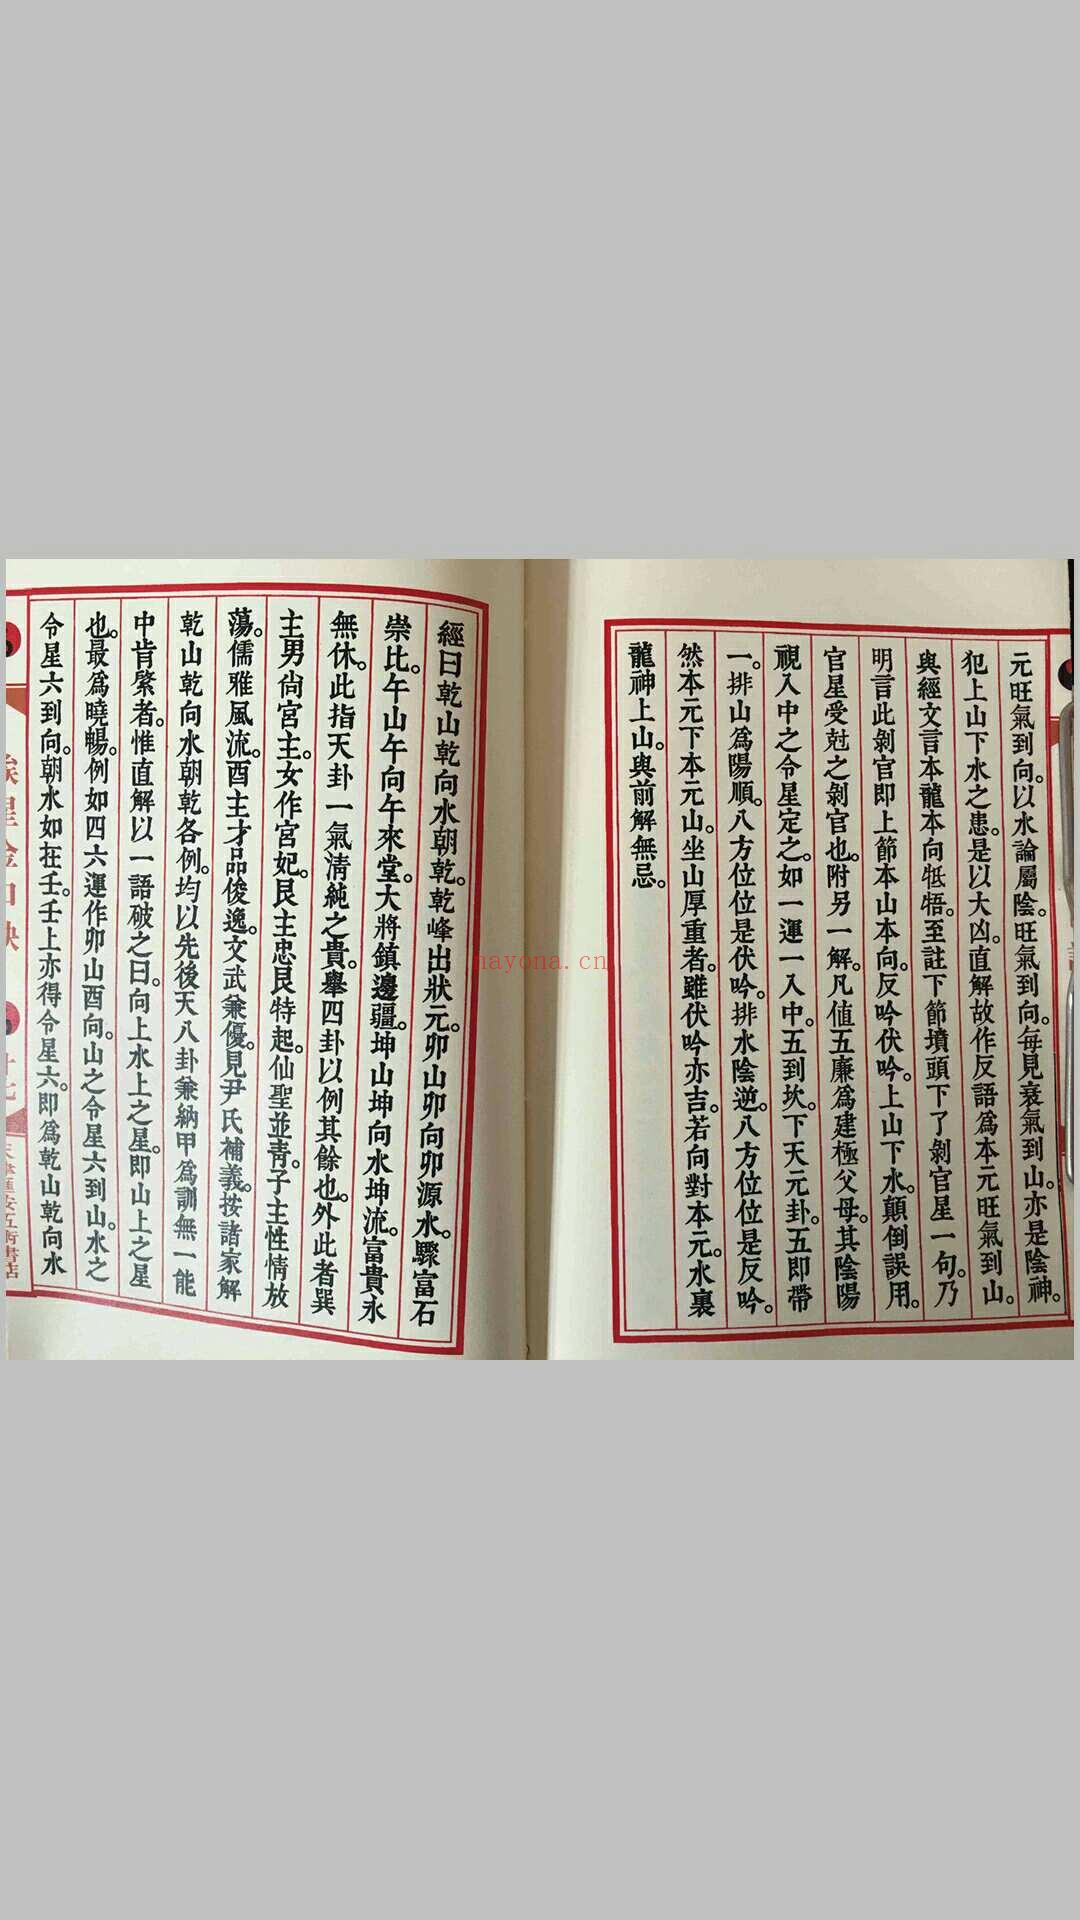 元旺氣到向。以水論屬陰。旺氣到向。每見衰氣到山。亦是陰神。
犯上山下水之患。是以大凶。直解故作反語爲本元旺氣到山。
與經文言本龍本向牴牾。至註下節墳頭下了剝官星一句。乃
明言此剝官即上節本山本向。反吟伏吟。上山下水。顛倒誤用。
官星受尅之剝官也。附另一解。凡値五廉爲建極父母。其陰陽
視入中之令星定之。如一運一入中。五到坎。下天元卦。五即帶
一。排山爲陽順。八方位位是伏吟。排水陰逆。八方位位是反吟。
然本元下本元山。坐山厚重者。雖伏吟亦吉。若向對本元。水裏
龍神上山。與前解無忌。
經曰乾山乾向水朝乾。乾峰出狀元。卯山卯向卯源水。驟富石
崇比。午山午向午來堂。大將鎮邊疆。坤山坤向水坤流。富貴永
無休。此指天卦一氣清純之貴。舉四卦以例其餘也。外此者巽
主男尚宮主。女作宮妃。艮主忠良特起。仙聖並青。子主性情放
蕩。儒雅風流。酉主才品俊逸。文武兼優。見尹氏補義。按諸家解
乾山乾向水朝乾各例。均以先後天八卦兼納甲爲訓無一能
中肯綮者。惟直解以一語破之曰。向上水上之星。即山上之星
也。最爲曉暢。例如四六運作卯山酉向。山之令星六到山。水之
令星六到向。朝水如在壬。壬上亦得令星六。即爲乾山乾向水
天津蓮安五術書店
nayona.cn